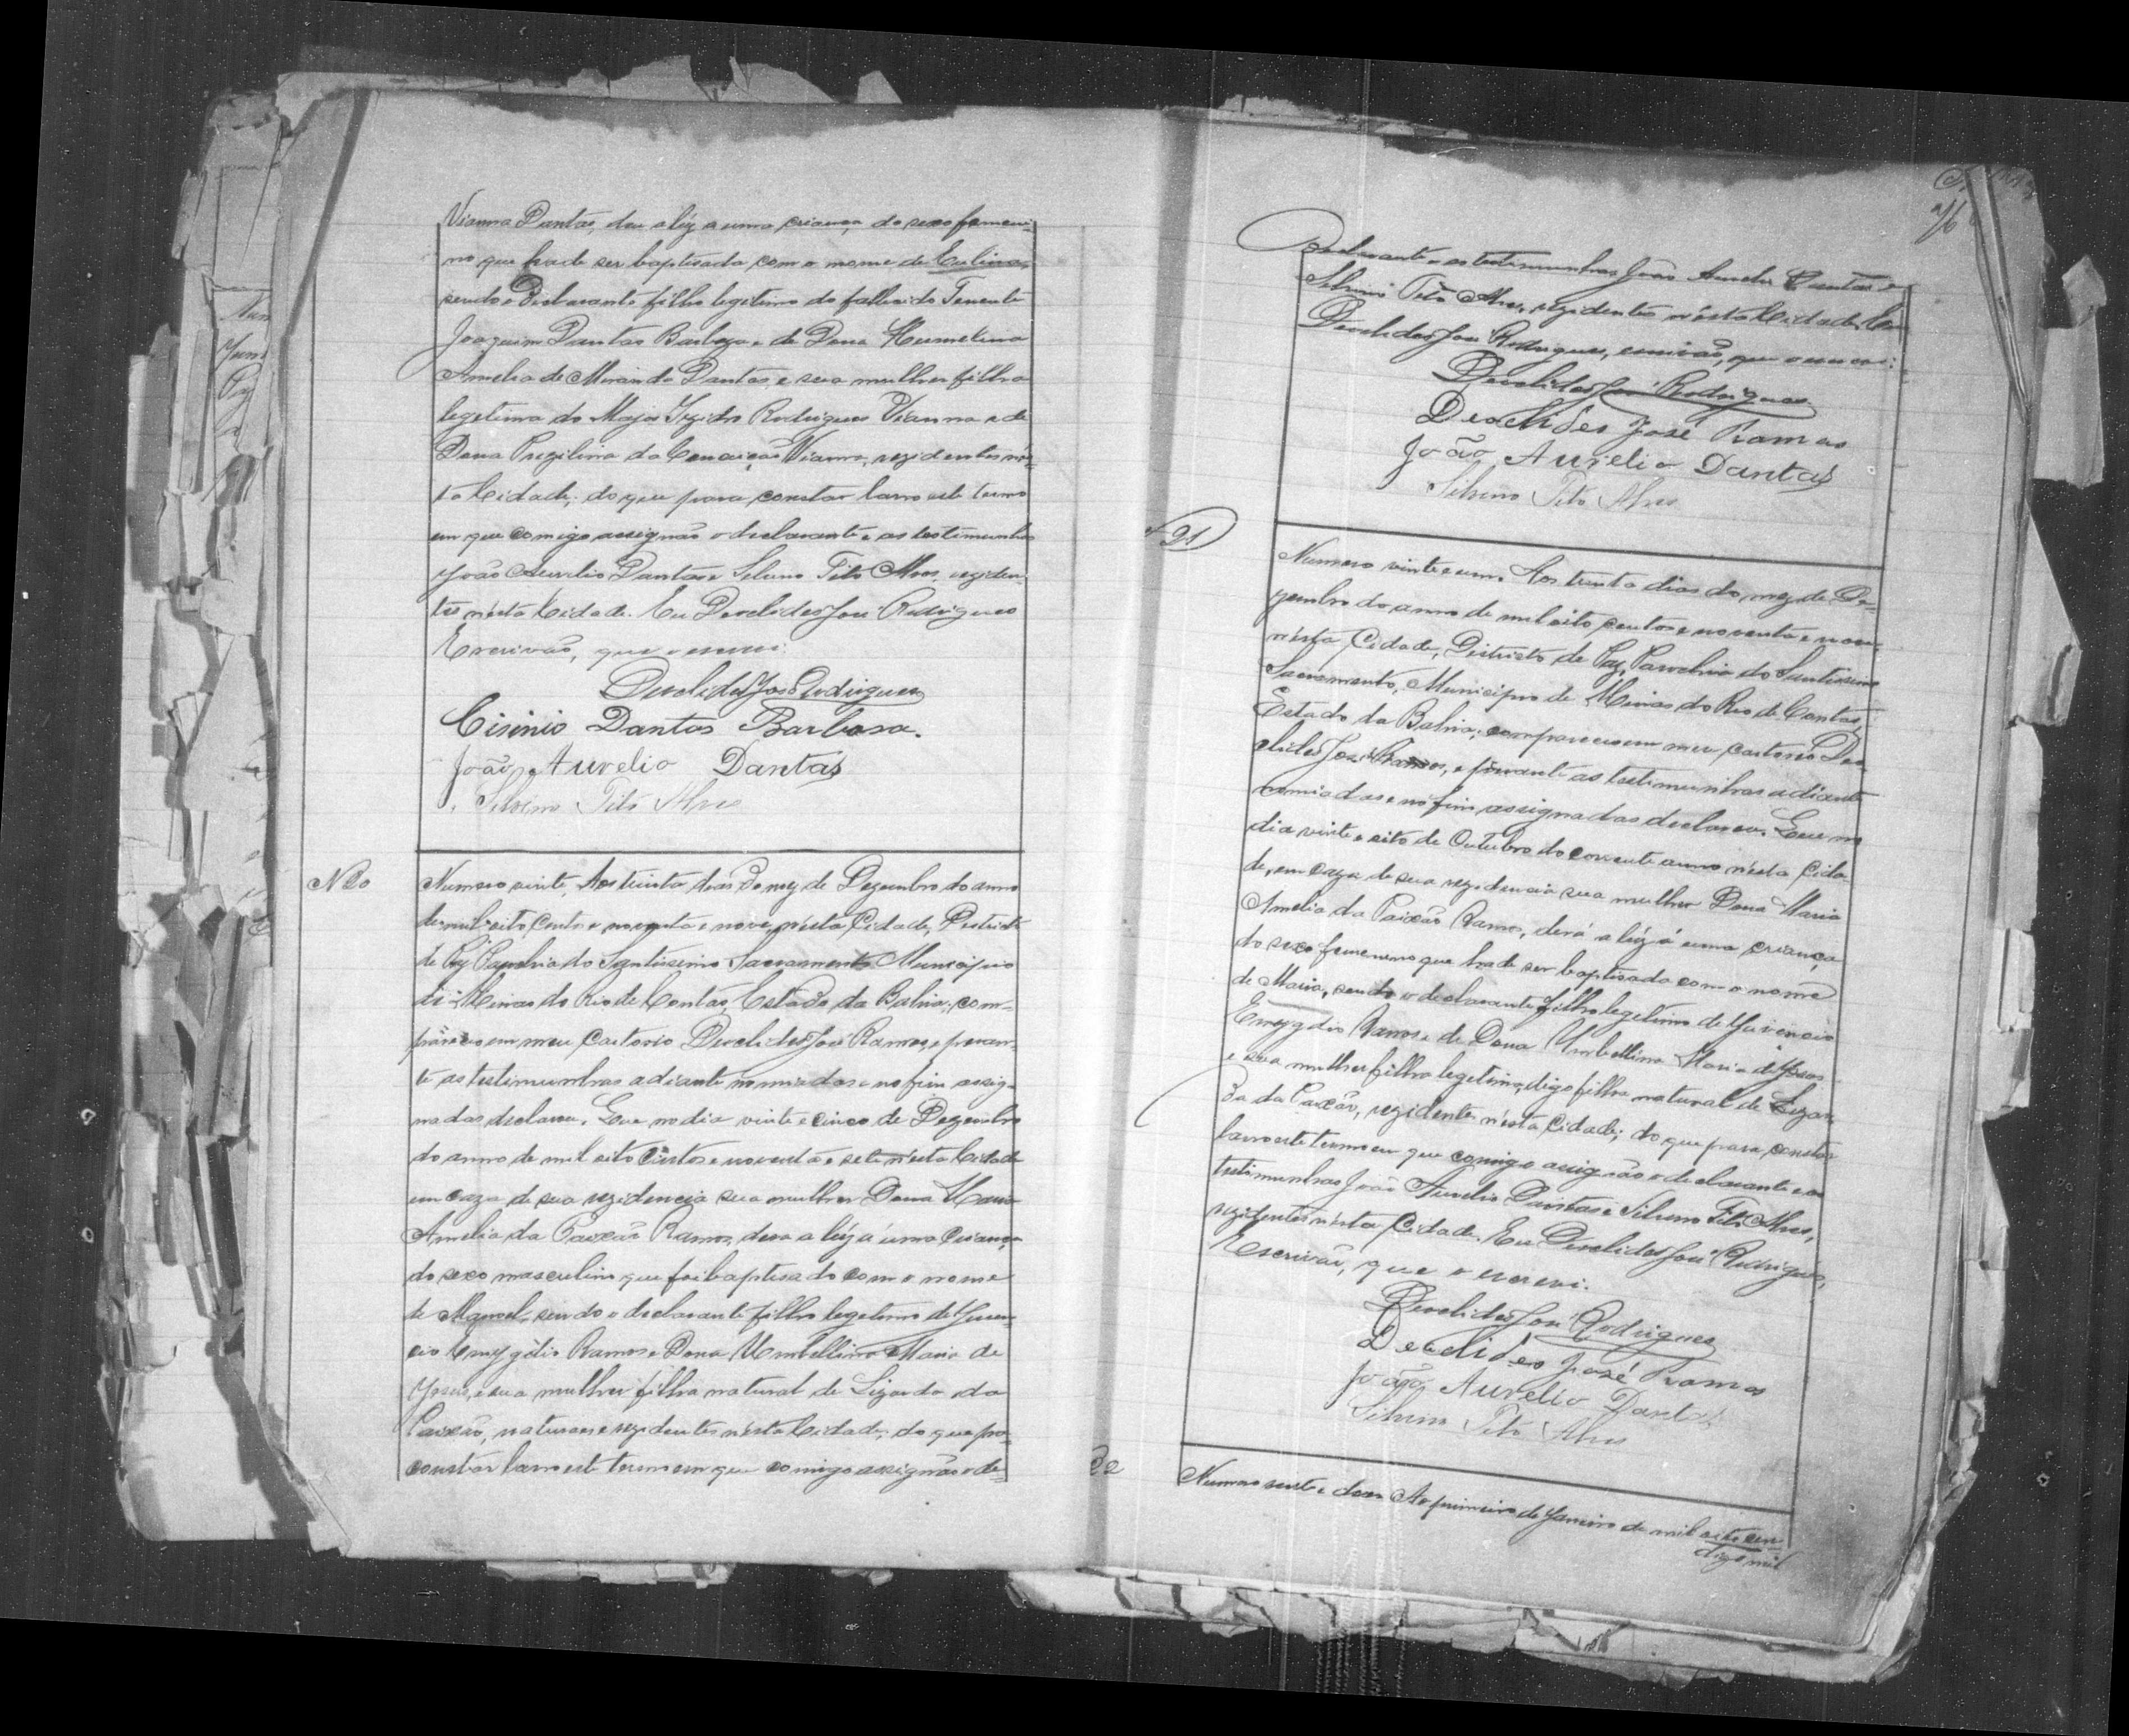 Vianna Dantas, deu a lúz a uma criança do sexo femeni-
no que hade ser baptisada com o nome de Eulina,
sendo o Declarante filho legitimo do fallecido Tenente
Joaquim Dantas Barboza e de Dona Hermelina
Amelia de Miranda Dantas, e sua mulher filha
legitima do Major Rodrigues Vianna e de
Dona da Conceição Vianna, rezidentes nés-
ta Cidade; do que para constar lavro este termo
em que comigo assignão o declarante e as testimunhas
João Aurelio Dantas e Silvino Tito Alves, reziden-
tes nésta Cidade. Eu Deoclides José Rodrigues
Escrivão, que o escrevi.
Deoclides José Rodrigues
Cisinio Dantas Barbosa.
João Aurelio Dantas
Silvino Tito Alves
N 20
Numero vinte, Aos trinta dias do mez de Dezembro do anno
de mil oito centos e noventa e nove, nésta Cidade, Destricto
de Paz, Parochia do Santissimo Sacramento Municipio
de Minas do Rio de Contas, Estado da Bahia; com-
pareceo em meu Cartorio Deoclides José Ramos, e peran-
te as testimunhas adiante nomiadas e no fim assig-
nadas declarou. Que no dia vinte e cinco de Dezembro
do anno de mil oito centos e noventa e sete nésta Cidade
em caza de sua rezidencia sua mulher Dona Maria
Amelia da Paixão Ramos, dera a lúz á uma Criança
do sexo masculino que foi baptisado com o nome
de Manoel, sendo o declarante filho legetimo de Juven-
cio Emygdio Ramos e Dona Umbellina Maria de
Jesus, e sua mulher filha natural de Lizarda da
Paixão, naturaes e rezidentes nésta Cidade; do que pa-
constar lavro este termo em que comigo assignão o de-
Declarante e as testimunhas João Aurelio Dantas e
Silvino Tito Alves, rezidentes nésta Cidade. Eu
Deoclides José Rodrigues, escrivão, que o escrevi.
Deoclides José Rodrigues
Deoclides José Ramos
João Aurelio Dantas
Silvino Tito Alves
21
Numero vinte e um. Aos trinta dias do mez de De-
zembro do anno de mil oito centos e noventa e nove
nésta Cidade, Districto de Paz, Parochia do Santissimo
Sacramento, Municipio de Minas do Rio de Contas,
Estado da Bahia; compareceo em meu cartorio Deo-
clides José Ramos, e perante as testimunhas adiante
nomiadas e no fim assignadas declarou. Que no
dia vinte e oito de Outubro do corrente anno nésta Cida-
de, em caza de sua rezidencia sua mulher Dona Maria
Amelia da Paixão Ramos, derá a lúz á uma criança
do sexo femenino que hade ser baptisada com o nome
de Maria, sendo o declarante filho legetimo de Juvencio
Emygdio Ramos e de Dona Umbellina Maria de Jesus
e sua mulher filha legetima, digo filha natural de Lizar-
da da Paixão, rezidentes nésta Cidade; do que para constar
lavro este termo em que comigo assignão o declarante e as
testimunhas João Aurelio Dantas e Silvino Tito Alves,
rezidentes nésta Cidade. Eu Deoclides José Rodrigues,
Escrivão, que o escrevi.
Deoclides José Rodrigues
Deoclides José Ramos
João Aurelio Dantas
Silvino Tito Alves
22
Numero vinte e dous Ao primeiro de Janeiro de mil oito cen-
digo mil